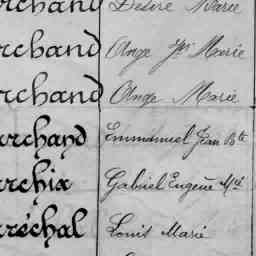 rchand Désiré Marie
rchand Ange Jn Marie
rchand Ange Marie
rchand Emmanuel Jean Bte
rchix Gabriel Eugène Mie
réchal Louis Marie